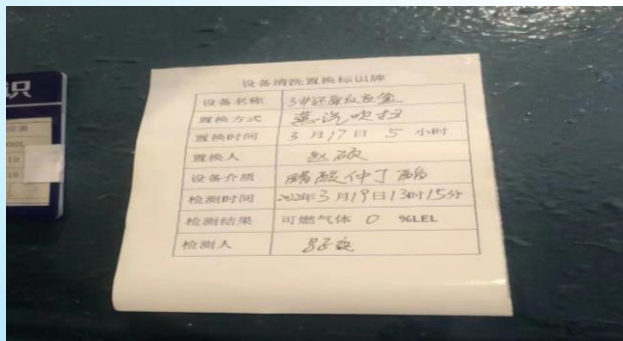 识
设备清洗置换标识牌
设备名称 3#还原反应釜
置换方式 蒸汽吹扫
置换时间 3月17日 5 小时
置换人
设备介质 醋酸仲丁酯
检测时间 2022年3月19日13时15分
检测结果 可燃气体 0 %LEL
检测人